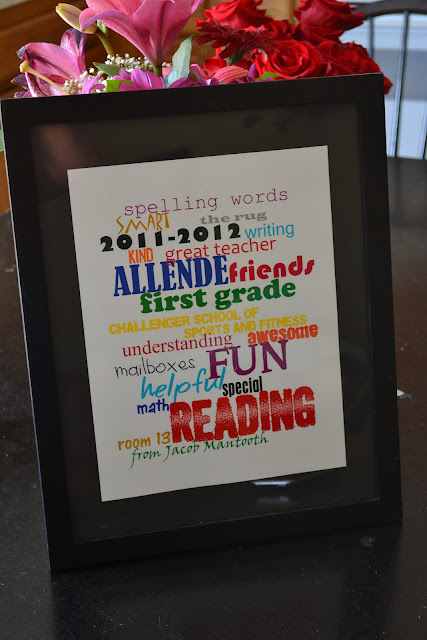 spelling words
SMART the rug
2011-2012 writing
KIND great teacher
ALLENDE friends
first grade
CHALLENGER SCHOOL OF
SPORTS AND FITNESS
understanding awesome
mailboxes FUN
helpful special
math READING
room 13
from Jacob Mantooth